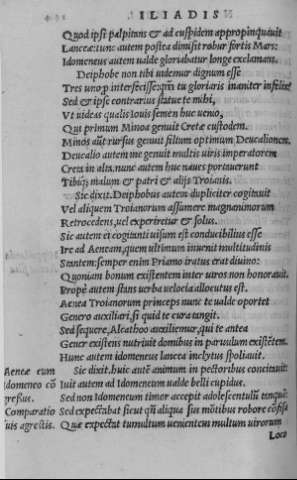 ILIADIS
Quod ipsi palpitans & ad cuspidem appropinquauit
Lanceæ: tunc autem postea dimisit robur fortis Mars:
Idomeneus autem ualde gloriabatur longe exclamans.
Deiphobe non tibi uidemur dignum esse
Tres uno ꝑ interfecisse: qm̃ tu gloriaris inaniter infelix?
Sed & ipse contrarius statue te mihi,
Vt uideas qualis Iouis semen huc uenio,
Qui primum Minoa genuit Cretæ custodem.
Minos aũt rursus genuit filium optimum Deucalionem.
Deucalio autem me genuit multis uiris imperatorem
Creta in alta. nunc autem huc naues portauerunt
Tibiq; malum & patri & alijs Troianis.
Sic dixit. Deiphobus autem dupliciter cogitauit
Vel aliquem Troianorum assumere magnanimorum
Retrocedens, uel experiretur & solus.
Sic autem ei cogitanti uisum est conducibilius esse
Ire ad Aeneam, quem ultimum inuenit multitudinis
Stantem: semper enim Priamo iratus erat diuino:
Quoniam bonum existentem inter uiros non honorauit.
Prope autem stans uerba uelocia allocutus est.
Aenea Troianorum princeps nunc te ualde oportet
Genero auxiliari, si quid te cura tangit.
Sed sequere, Alcathoo auxiliemur, qui te antea
Gener existens nutriuit domibus in paruulum existẽtem.
Hunc autem idomeneus lancea inclytus spoliauit.
Aeneæ cum Sic dixit. huic autẽ animum in pectoribus concitauit:
idomeneo cõ Iuit autem ad Idomeneum ualde belli cupidus.
gressus. Sed non Idomeneum timor accepit adolescentulũ tenquẽ:
Comparatio Sed expectabat sicut qñ aliqua sus mõtibus robore cõfisa
suis agrestis. Quæ expectat tumultum uenientem multum uirorum
Loco